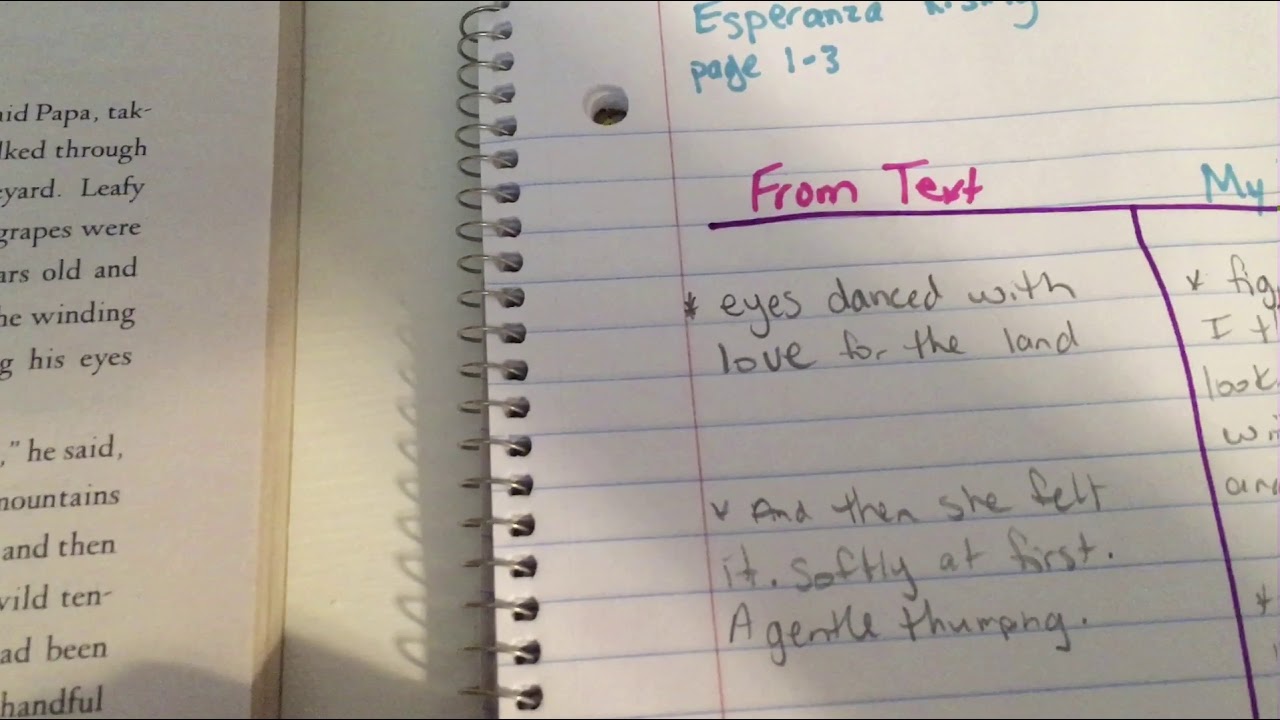 aid Papa, tak-
lked through
eyard. Leafy
grapes were
ars old and
he winding
g his eyes
," he said,
mountains
and then
wild ten-
ad been
handful
Esperanza Rising
page 1-3
From Text
My
* eyes danced with
love for the land
* And then she felt
it. Softly at first.
A gentle thumping.
* fig
I t
look
wi
and
*